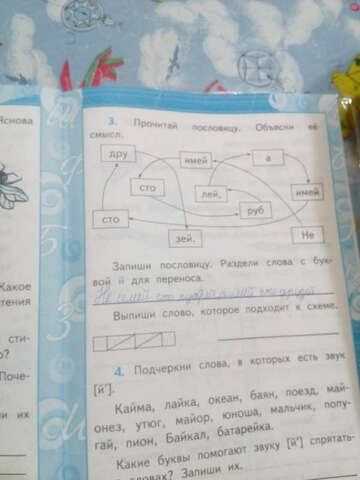 Яснова
3. Прочитай пословицу. Объясни её
смысл.
дру
имей
а
сто
лей,
имей
сто
руб
зей.
Не
Запиши пословицу. Раздели слова с бук-
вой й для переноса.
Не имей сто рублей, а имей сто друзей
Выпиши слово, которое подходит к схеме.
4. Подчеркни слова, в которых есть звук
[й'].
Кайма, лайка, океан, баян, поезд, май-
онез, утюг, майор, юноша, мальчик, попу-
гай, пион, Байкал, батарейка.
Какие буквы помогают звуку [й'] спрятать-
словах? Запиши их.
Какое
тения
сти-
о?
Поче-
и их